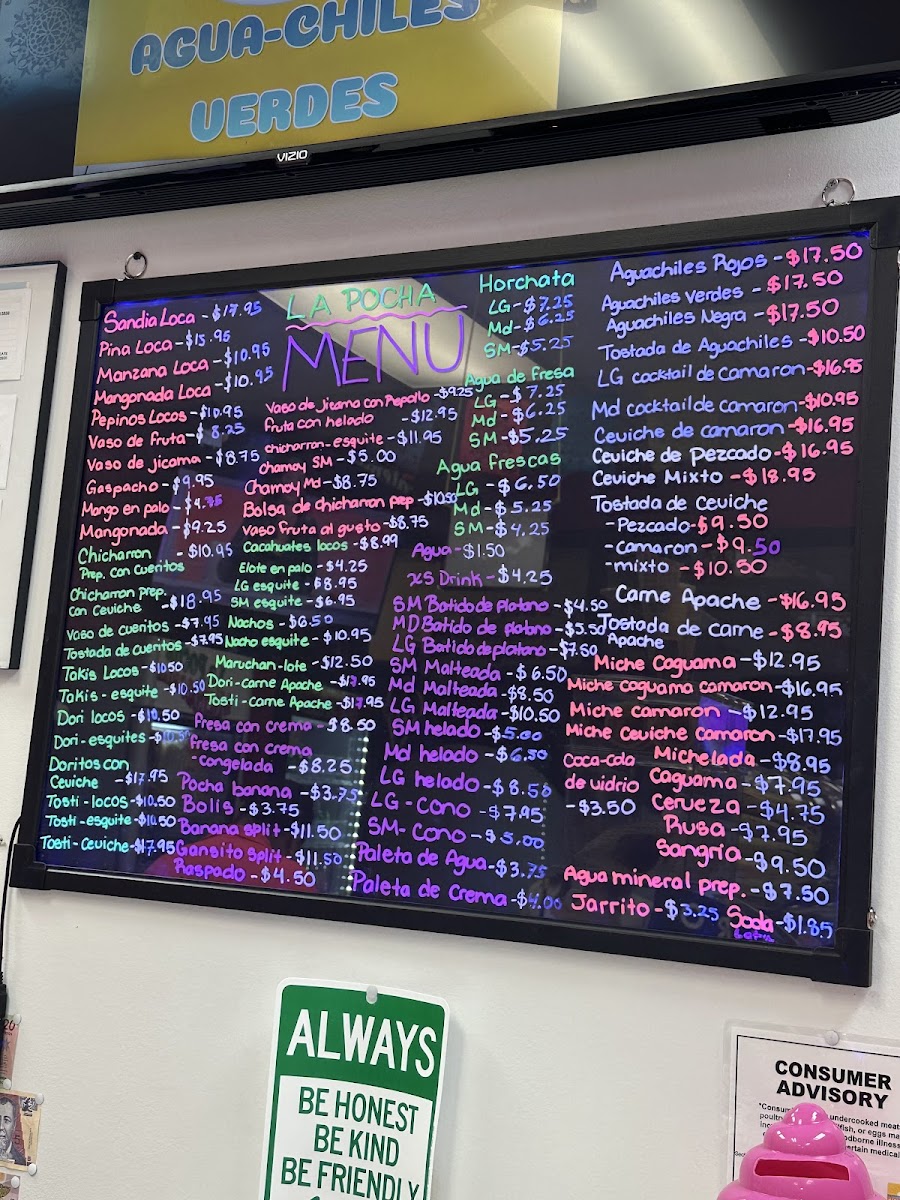 AGUA-CHILES
VERDES
VIZIO
LA POCHA
MENU
Sandia Loca - $17.95
Pina Loca - $15.95
Manzana Loca - $10.95
Mangonada Loca - $10.95
Pepinos Locos - $10.95
Vaso de fruta - $8.25
Vaso de jicama - $8.75
Gaspacho - $9.95
Mango en palo - $4.75
Mangonada - $9.25
Chicharron - $10.95
Prep. Con Cueritos
Chicharron prep.
con Ceviche - $18.95
Vaso de cueritos - $7.95
Tostada de cueritos - $7.95
Takis Locos - $10.50
Takis - esquite - $10.50
Dori locos - $10.50
Dori - esquites - $10.50
Doritos con
Ceviche - $17.95
Tosti - locos - $10.50
Tosti - esquite - $10.50
Tosti - Ceviche - $17.95
Vaso de jicama con Pepollo - $9.25
fruta con helado - $12.95
chicharron - esquite - $11.95
chamoy SM - $5.00
Chamoy Md - $8.75
Bolsa de chicharron prep - $10.50
Vaso Fruta al gusto - $8.75
Cacahuates locos - $8.99
Elote en palo - $4.25
LG esquite - $8.95
SM esquite - $6.95
Nachos - $6.50
Nacho esquite - $10.95
Maruchan - lote - $12.50
Dori - carne Apache - $17.95
Tosti - carne Apache - $17.95
Fresa con crema - $8.50
Fresa con crema
- congelada - $8.25
Pocha banana - $3.75
Bolis - $3.75
Banana split - $11.50
Gansito split - $11.50
Raspado - $4.50
Horchata
LG - $7.25
Md - $6.25
SM - $5.25
Agua de fresa
LG - $7.25
Md - $6.25
SM - $5.25
Agua frescas
LG - $6.50
Md - $5.25
SM - $4.25
Agua - $1.50
XS Drink - $4.25
SM Batido de platano - $4.50
MD Batido de platano - $5.50
LG Batido de platano - $7.50
SM Malteada - $6.50
Md Malteada - $8.50
LG Malteada - $10.50
SM helado - $5.00
Md helado - $6.50
LG helado - $8.50
LG - Cono - $7.95
SM - Cono - $5.00
Paleta de Agua - $3.75
Paleta de Crema - $4.00
Aguachiles Rojos - $17.50
Aguachiles Verdes - $17.50
Aguachiles Negra - $17.50
Tostada de Aguachiles - $10.50
LG cocktail de camaron - $16.95
Md cocktail de camaron - $10.95
Ceviche de camaron - $16.95
Ceviche de Pezcado - $16.95
Ceviche Mixto - $18.95
Tostada de Ceviche
- Pezcado - $9.50
- camaron - $9.50
- mixto - $10.50
Carne Apache - $16.95
Tostada de carne - $8.95
Apache
Miche Caguama - $12.95
Miche caguama camaron - $16.95
Miche camaron - $12.95
Miche ceviche camaron - $17.95
Coca-cola
de vidrio
- $3.50
Michelada - $8.95
Caguama - $7.95
Cerveza - $4.75
Rusa - $7.95
Sangria - $9.50
Agua mineral prep. - $7.50
Jarrito - $3.25
Soda - $1.85
ALWAYS
BE HONEST
BE KIND
BE FRIENDLY
CONSUMER
ADVISORY
undercooked meat